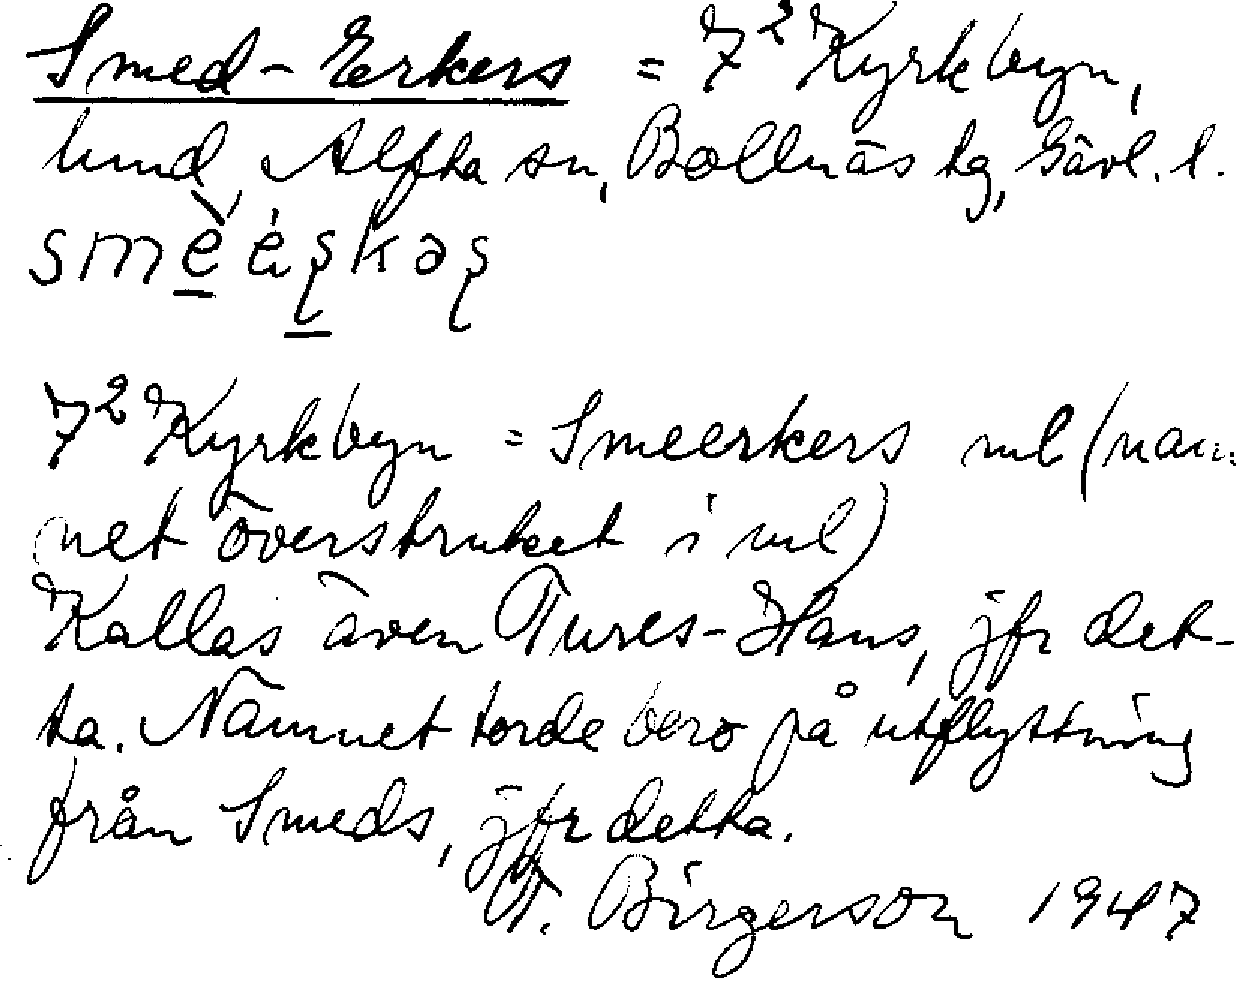 Smed-Erkers = 7² Kyrkbyn,
lund, Alfta sn, Bollnäs tg, Gävl. l.
smè̱ éʂ̱kəʂ
7² Kyrkbyn = Smeerkers ml (nam-
net överstruket i ml)
Kallas även Tures-Hans, jfr det-
ta. Namnet torde bero på utflyttning
från Smeds, jfr detta.
T. Birgerson 1947